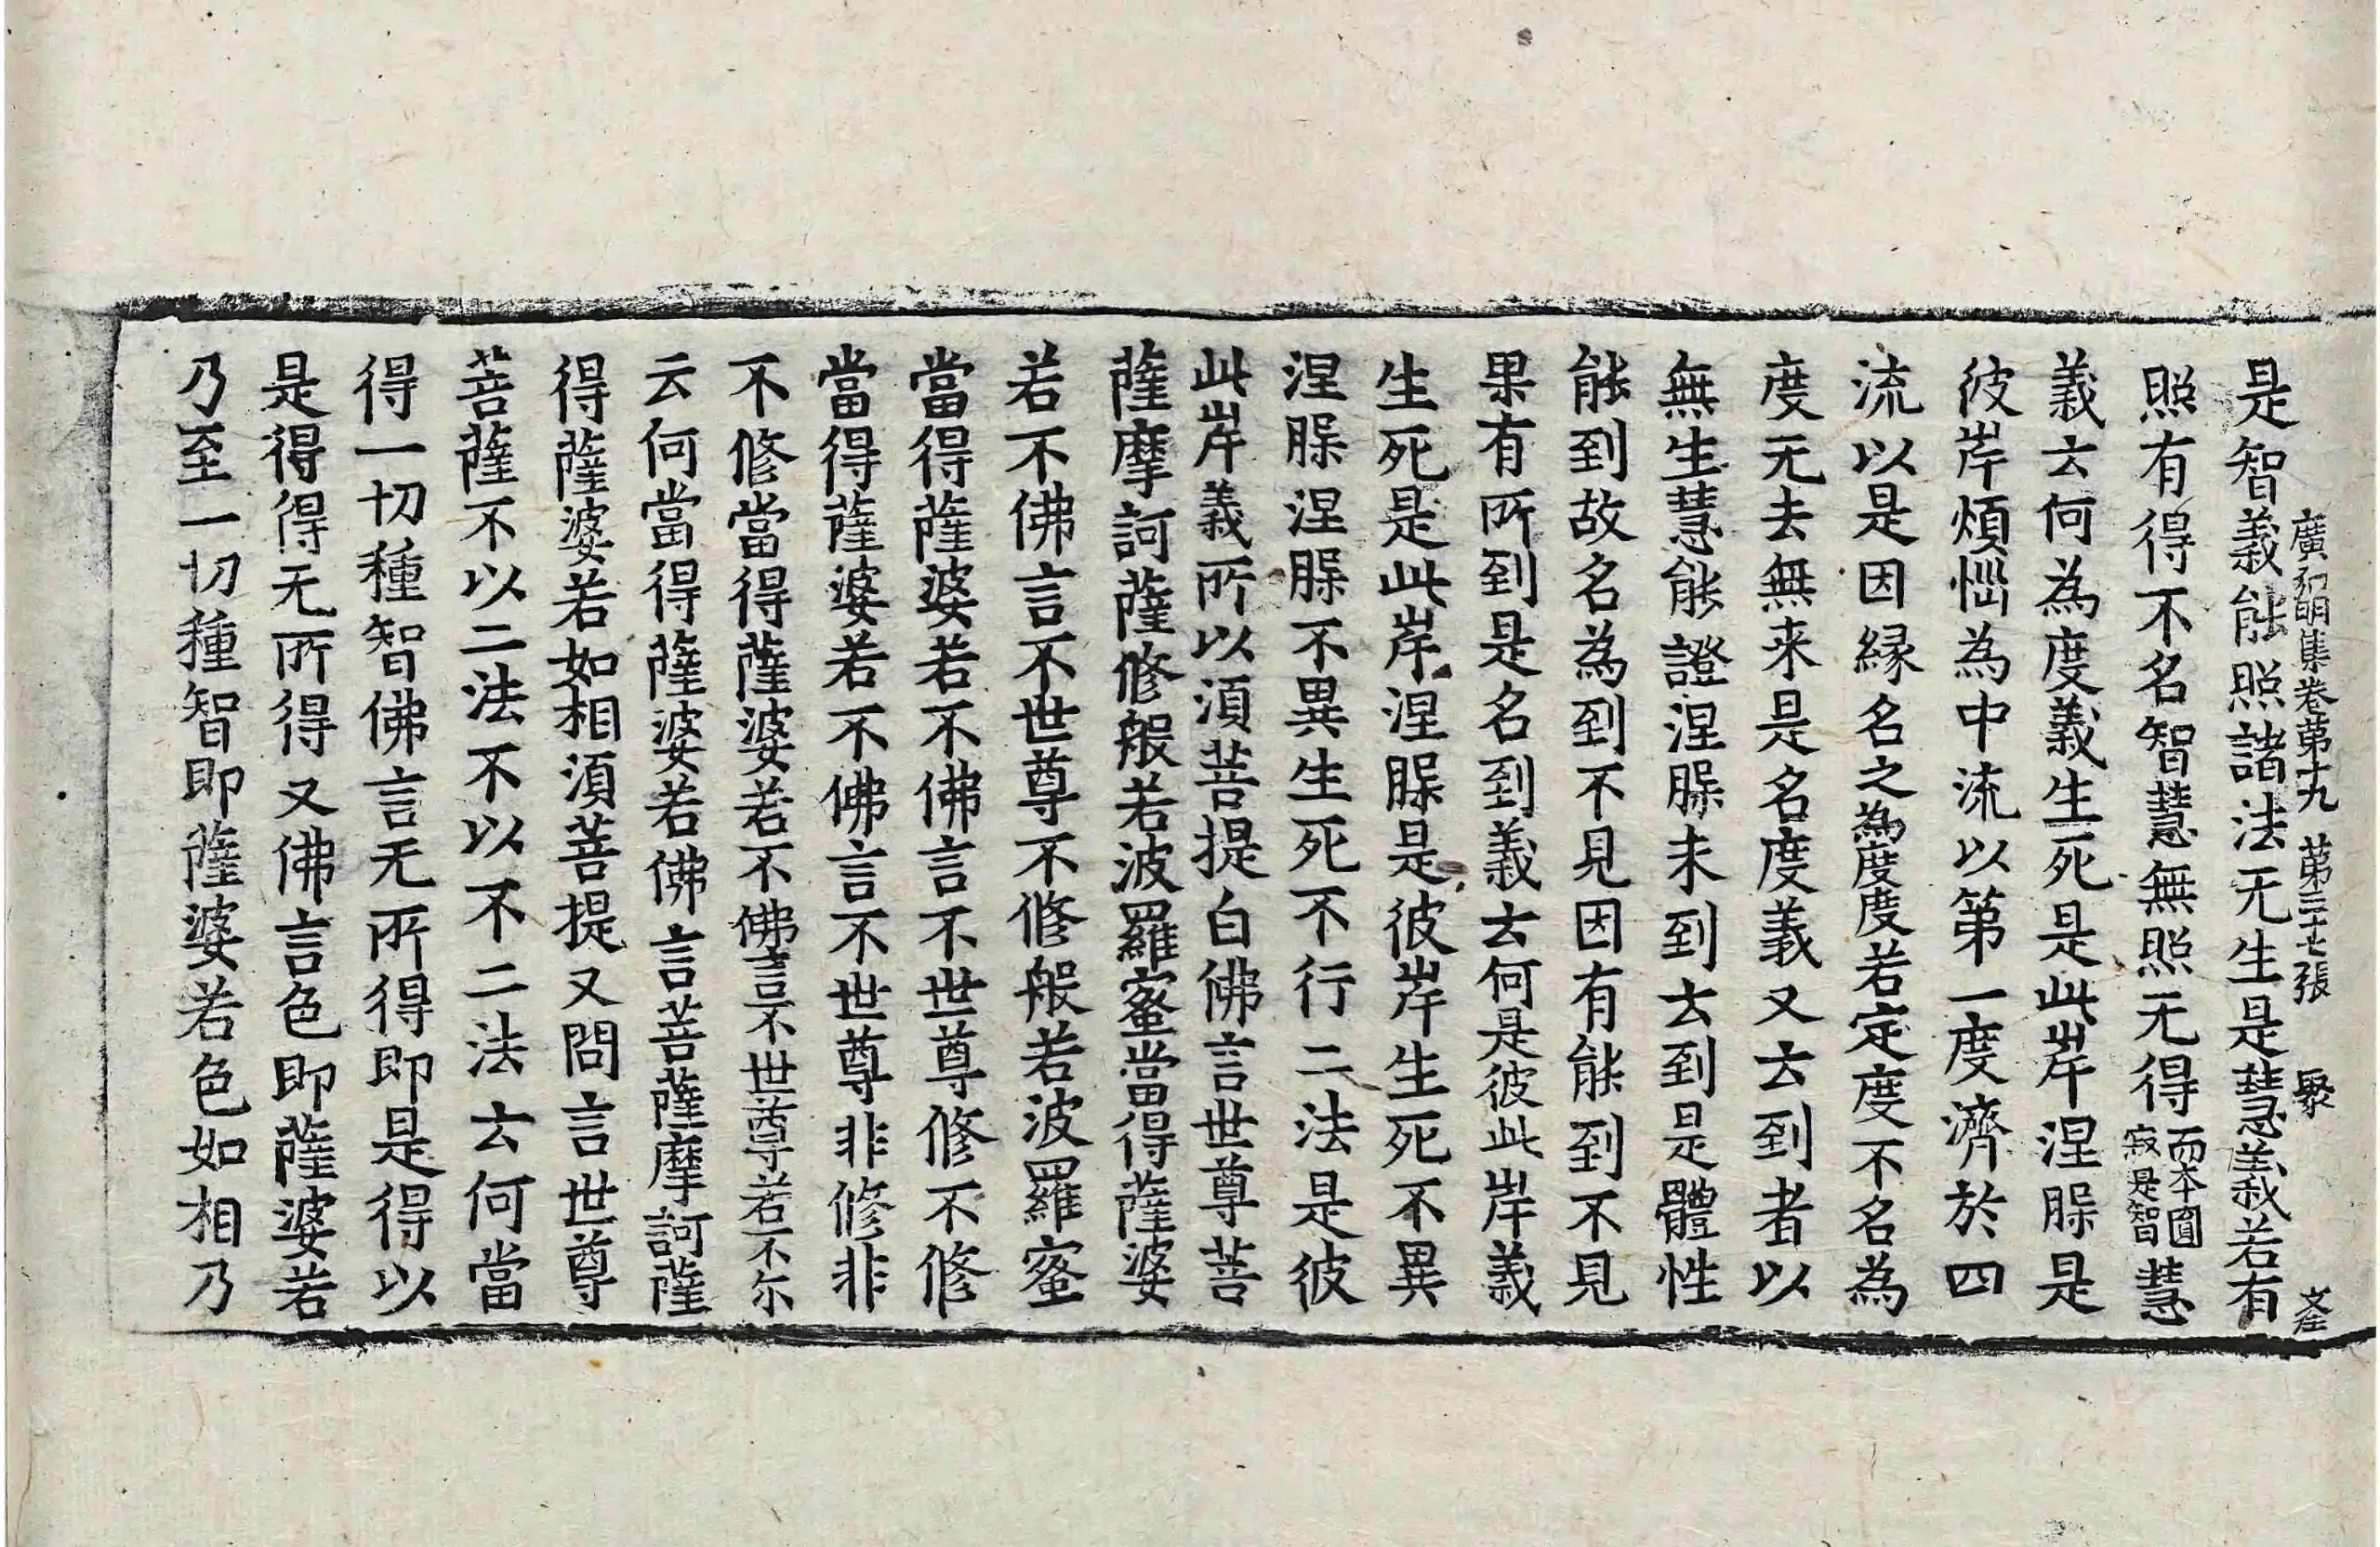 廣弘明集卷第十九　第三十七張　聚　文陞
是智義能照諸法无生是慧義若有
照有得不名智慧無照无得而本圎寂是智慧
義云何為度義生死是此岸涅槃是
彼岸煩惱為中流以第一度濟於四
流以是因緣名之為度度若定度不名為
度无去無来是名度義又云到者以
無生慧能證涅槃未到云到是體性
能到故名為到不見因有能到不見
果有所到是名到義云何是彼此岸義
生死是此岸涅槃是彼岸生死不異
涅槃涅槃不異生死不行二法是彼
此岸義所以須菩提白佛言世尊菩
薩摩訶薩修般若波羅蜜當得薩婆
若不佛言不世尊不修般若波羅蜜
當得薩婆若不佛言不世尊修不修
當得薩婆若不佛言不世尊非修非
不修當得薩婆若不佛言不世尊若不尓
云何當得薩婆若佛言菩薩摩訶薩
得薩婆若如相須菩提又問言世尊
菩薩不以二法不以不二法云何當
得一切種智佛言无所得即是得以
是得得无所得又佛言色即薩婆若
乃至一切種智即薩婆若色如相乃